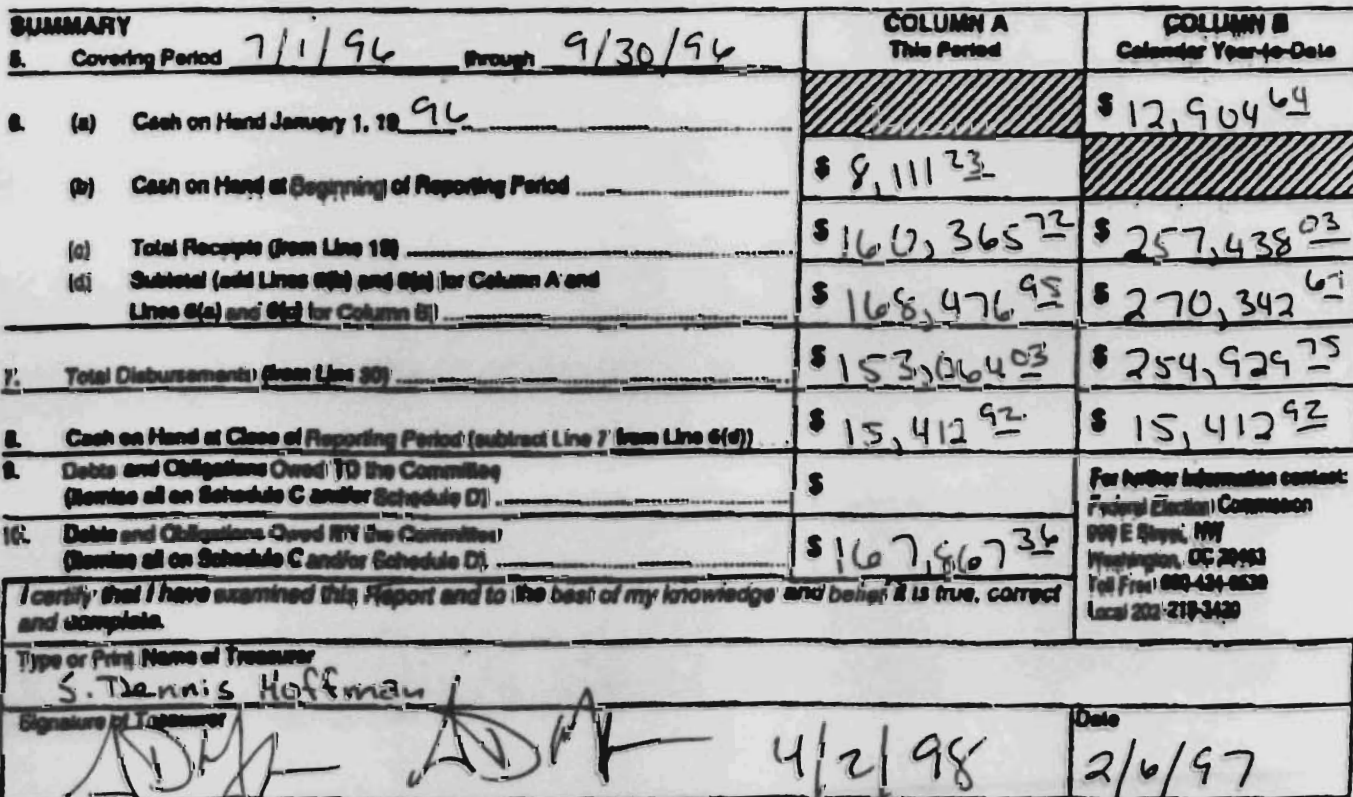 SUMMARY
5. Covering Period 7/1/96 through 9/30/96
COLUMN A
This Period
COLUMN B
Calendar Year-to-Date
6. (a) Cash on Hand January 1, 19 96
$ 12,904 64
(b) Cash on Hand at Beginning of Reporting Period
$ 8,111 23
(c) Total Receipts (from Line 19)
$ 160,365 72
$ 257,438 03
(d) Subtotal (add Lines 6(b) and 6(c) for Column A and
Lines 6(a) and 6(c) for Column B)
$ 168,476 95
$ 270,342 67
7. Total Disbursements (from Line 30)
$ 153,064 03
$ 254,929 75
8. Cash on Hand at Close of Reporting Period (subtract Line 7 from Line 6(d))
$ 15,412 92
$ 15,412 92
9. Debts and Obligations Owed TO the Committee
(Itemize all on Schedule C and/or Schedule D)
$
10. Debts and Obligations Owed BY the Committee
(Itemize all on Schedule C and/or Schedule D)
$ 167,867 36
For further information contact:
Federal Election Commission
999 E Street, NW
Washington, DC 20463
Toll Free
Local 202-219-3420
I certify that I have examined this Report and to the best of my knowledge and belief it is true, correct
and complete.
Type or Print Name of Treasurer
S. Dennis Hoffman
Signature of Treasurer
4/2/98
Date
2/6/97